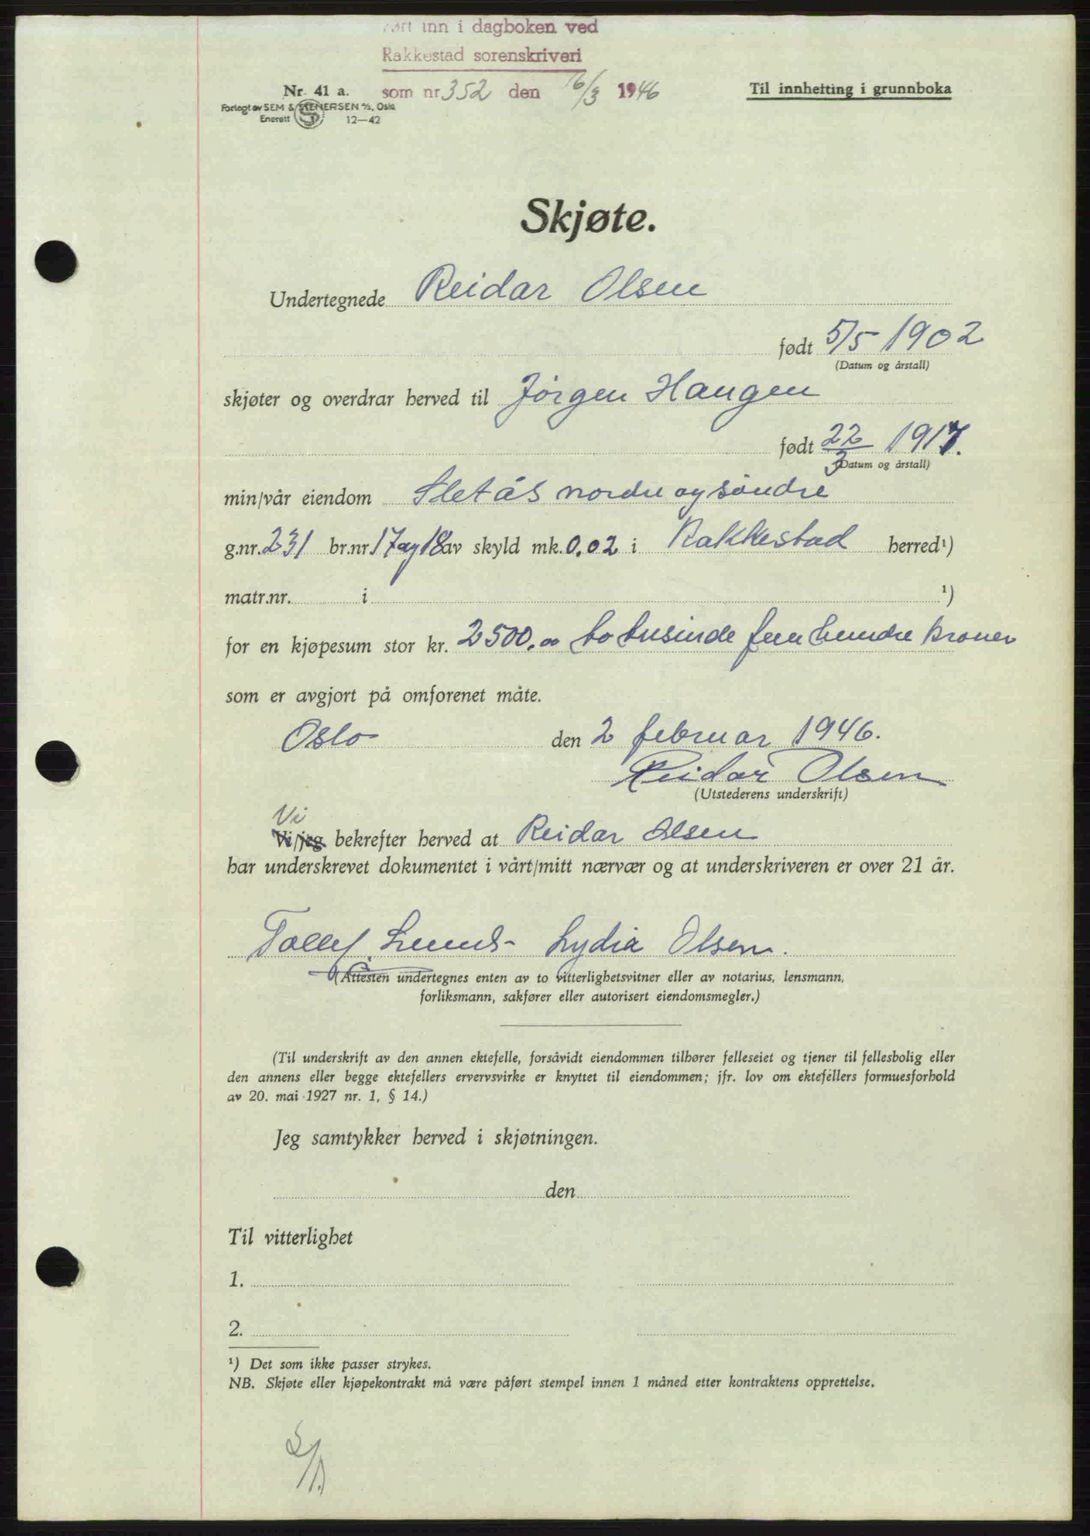 ført inn i dagboken ved
Rakkestad sorenskriveri
som nr 352 den 16/3 1946
Nr. 41 a.
Forlagt av SEM & STENERSEN A/S, Oslo
Enerett 12—42
Til innhefting i grunnboka
Skjøte.
Undertegnede Reidar Olsen
født 5/5 1902
(Datum og årstall)
skjøter og overdrar herved til Jørgen Haugen
født 22/3 1917.
(Datum og årstall)
min/vår eiendom Sletås nordre og søndre
g.nr. 231 br.nr. 17 og 18 av skyld mk. 0.02 i Rakkestad herred¹)
matr.nr. i ¹)
for en kjøpesum stor kr. 2500,00 to tusinde fem hundre kroner
som er avgjort på omforenet måte.
Oslo den 2 februar 1946.
Reidar Olsen
(Utstederens underskrift)
Vi
Vi/jeg bekrefter herved at Reidar Olsen
har underskrevet dokumentet i vårt/mitt nærvær og at underskriveren er over 21 år.
Tollef Lund Lydia Olsen.
(Attesten undertegnes enten av to vitterlighetsvitner eller av notarius, lensmann,
forliksmann, sakfører eller autorisert eiendomsmegler.)
(Til underskrift av den annen ektefelle, forsåvidt eiendommen tilhører felleseiet og tjener til fellesbolig eller
den annens eller begge ektefellers ervervsvirke er knyttet til eiendommen; jfr. lov om ektefellers formuesforhold
av 20. mai 1927 nr. 1, § 14.)
Jeg samtykker herved i skjøtningen.
den
Til vitterlighet
1.
2.
¹) Det som ikke passer strykes.
NB. Skjøte eller kjøpekontrakt må være påført stempel innen 1 måned etter kontraktens opprettelse.